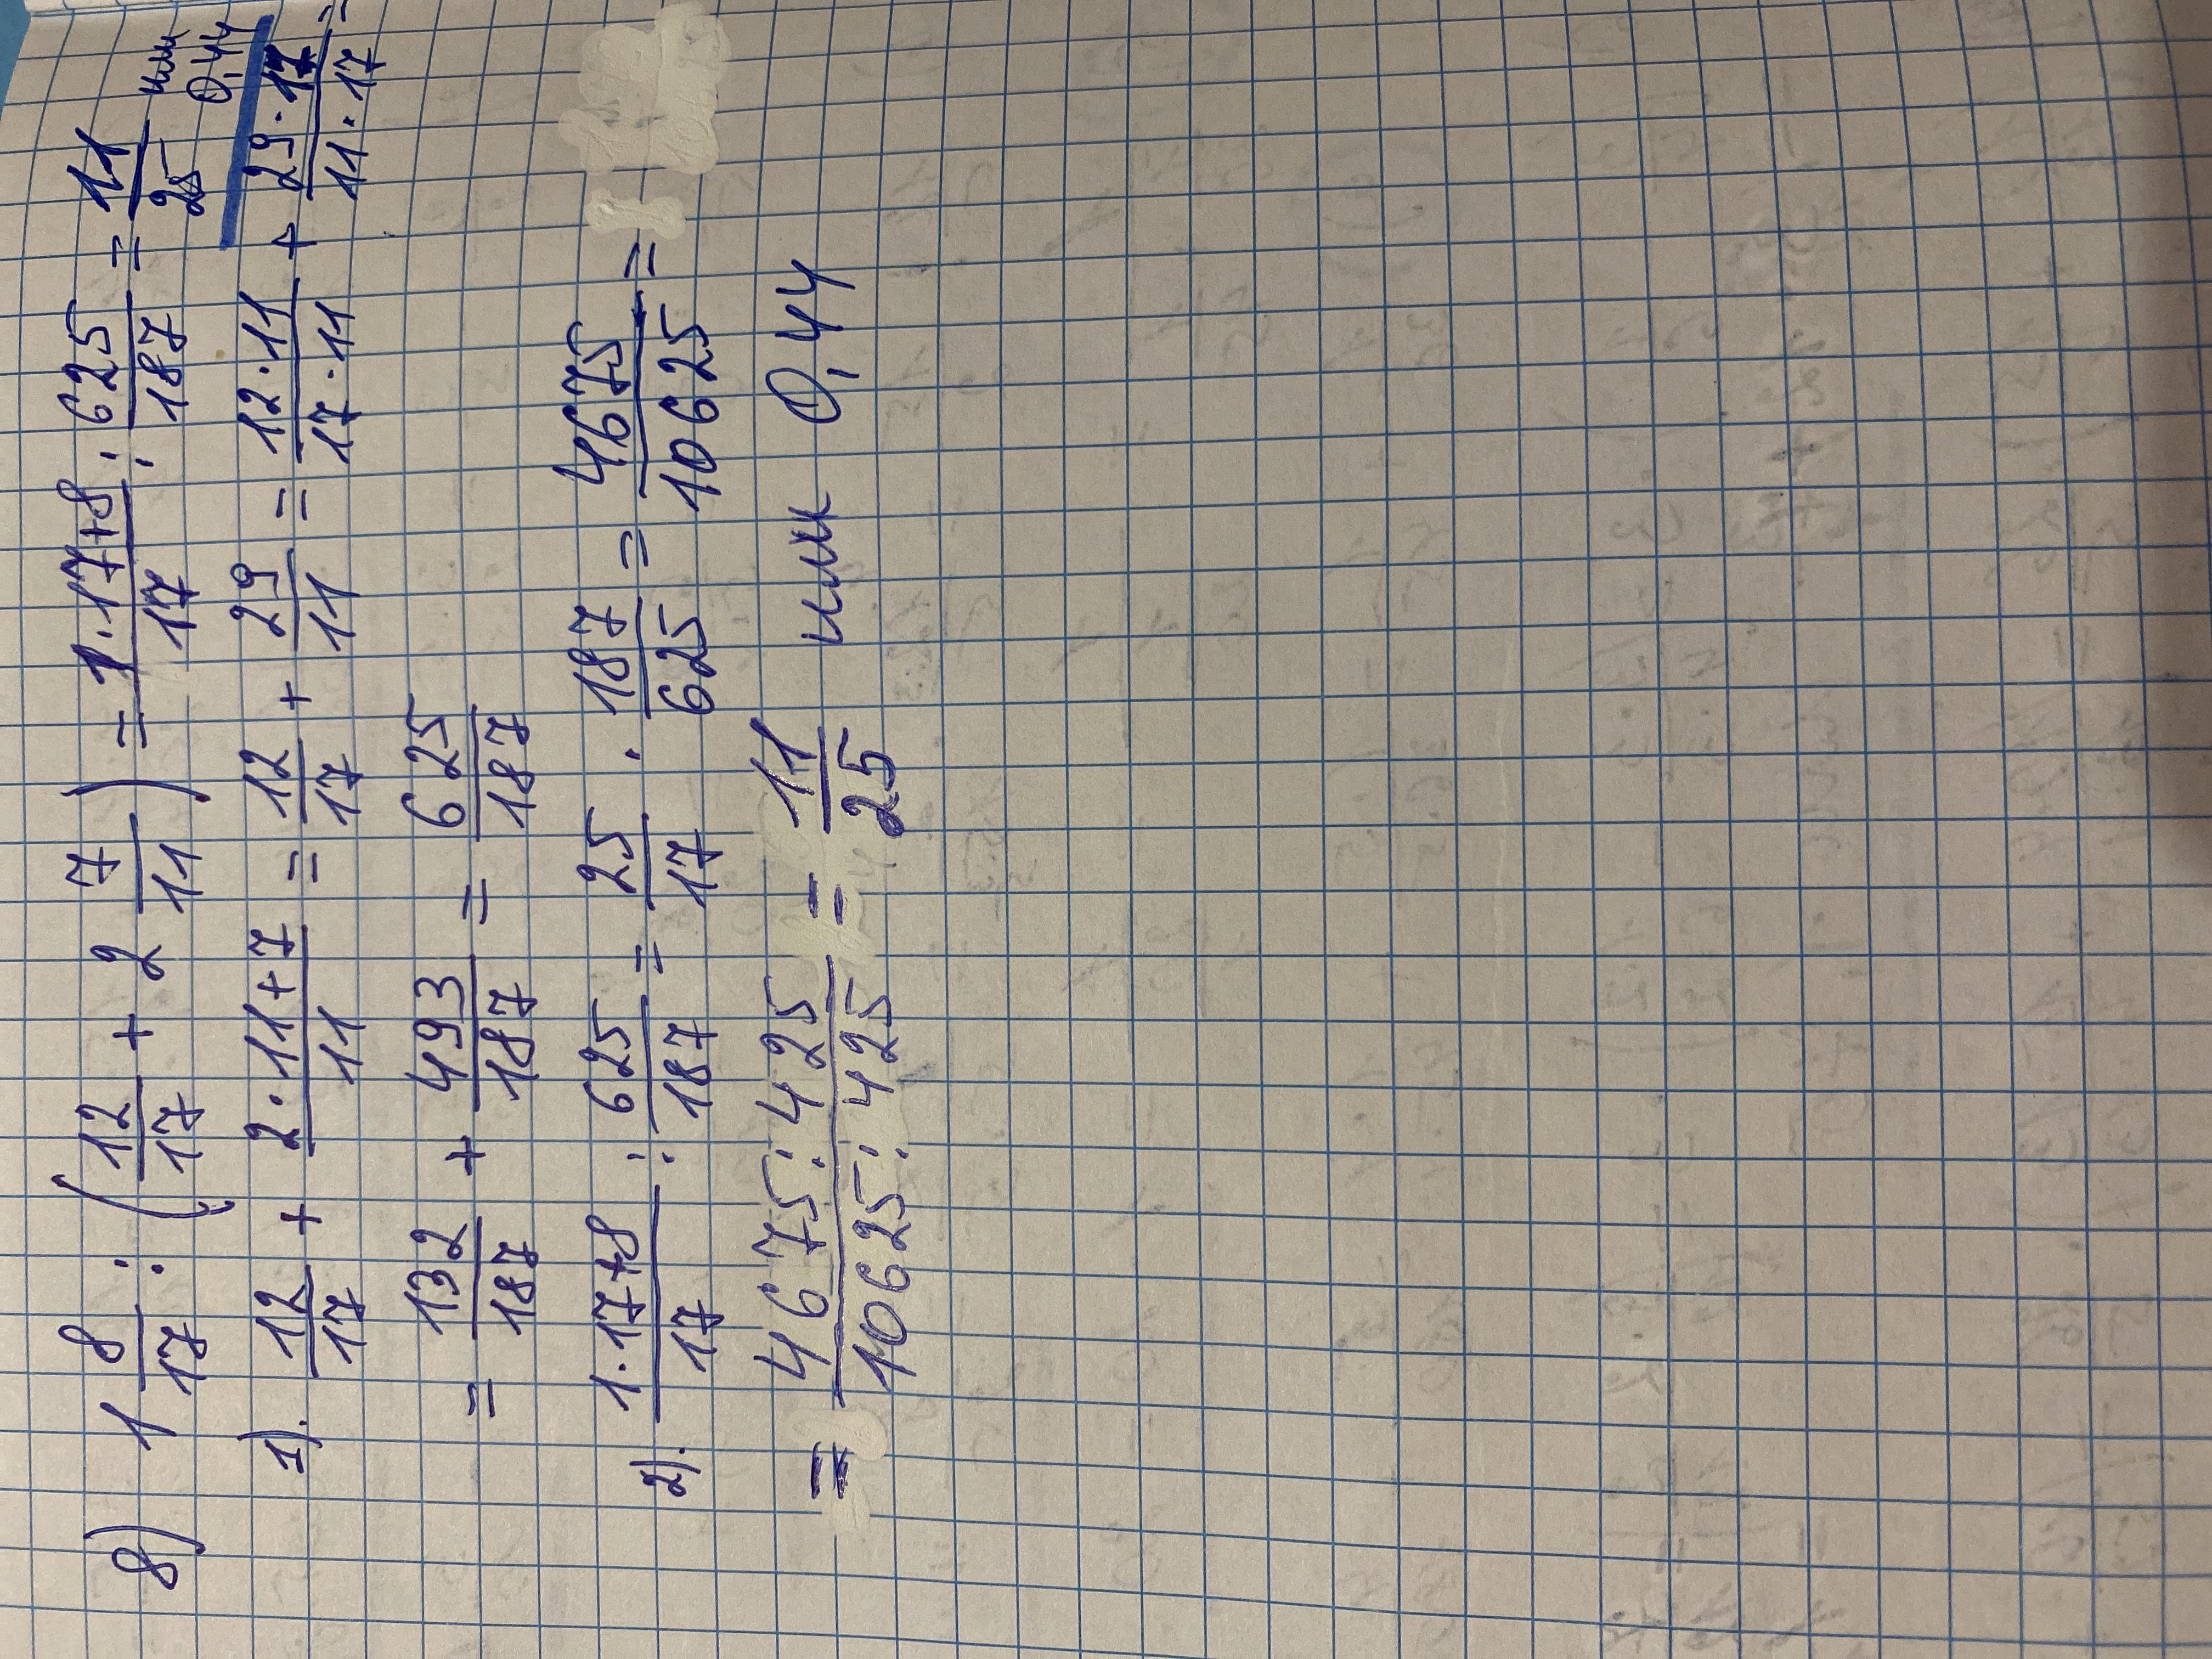 8) 1 8/17 : (12/17 + 2 7/11) = 1·17+8/17 : 625/187 = 11/25 или 0,44
1). 12/17 + 2·11+7/11 = 12/17 + 29/11 = 12·11/17·11 + 29·17/11·17 =
= 132/187 + 493/187 = 625/187
2). 1·17+8/17 : 625/187 = 25/17 · 187/625 = 4675/10625 =
= 4675:425/10625:425 = 11/25 или 0,44